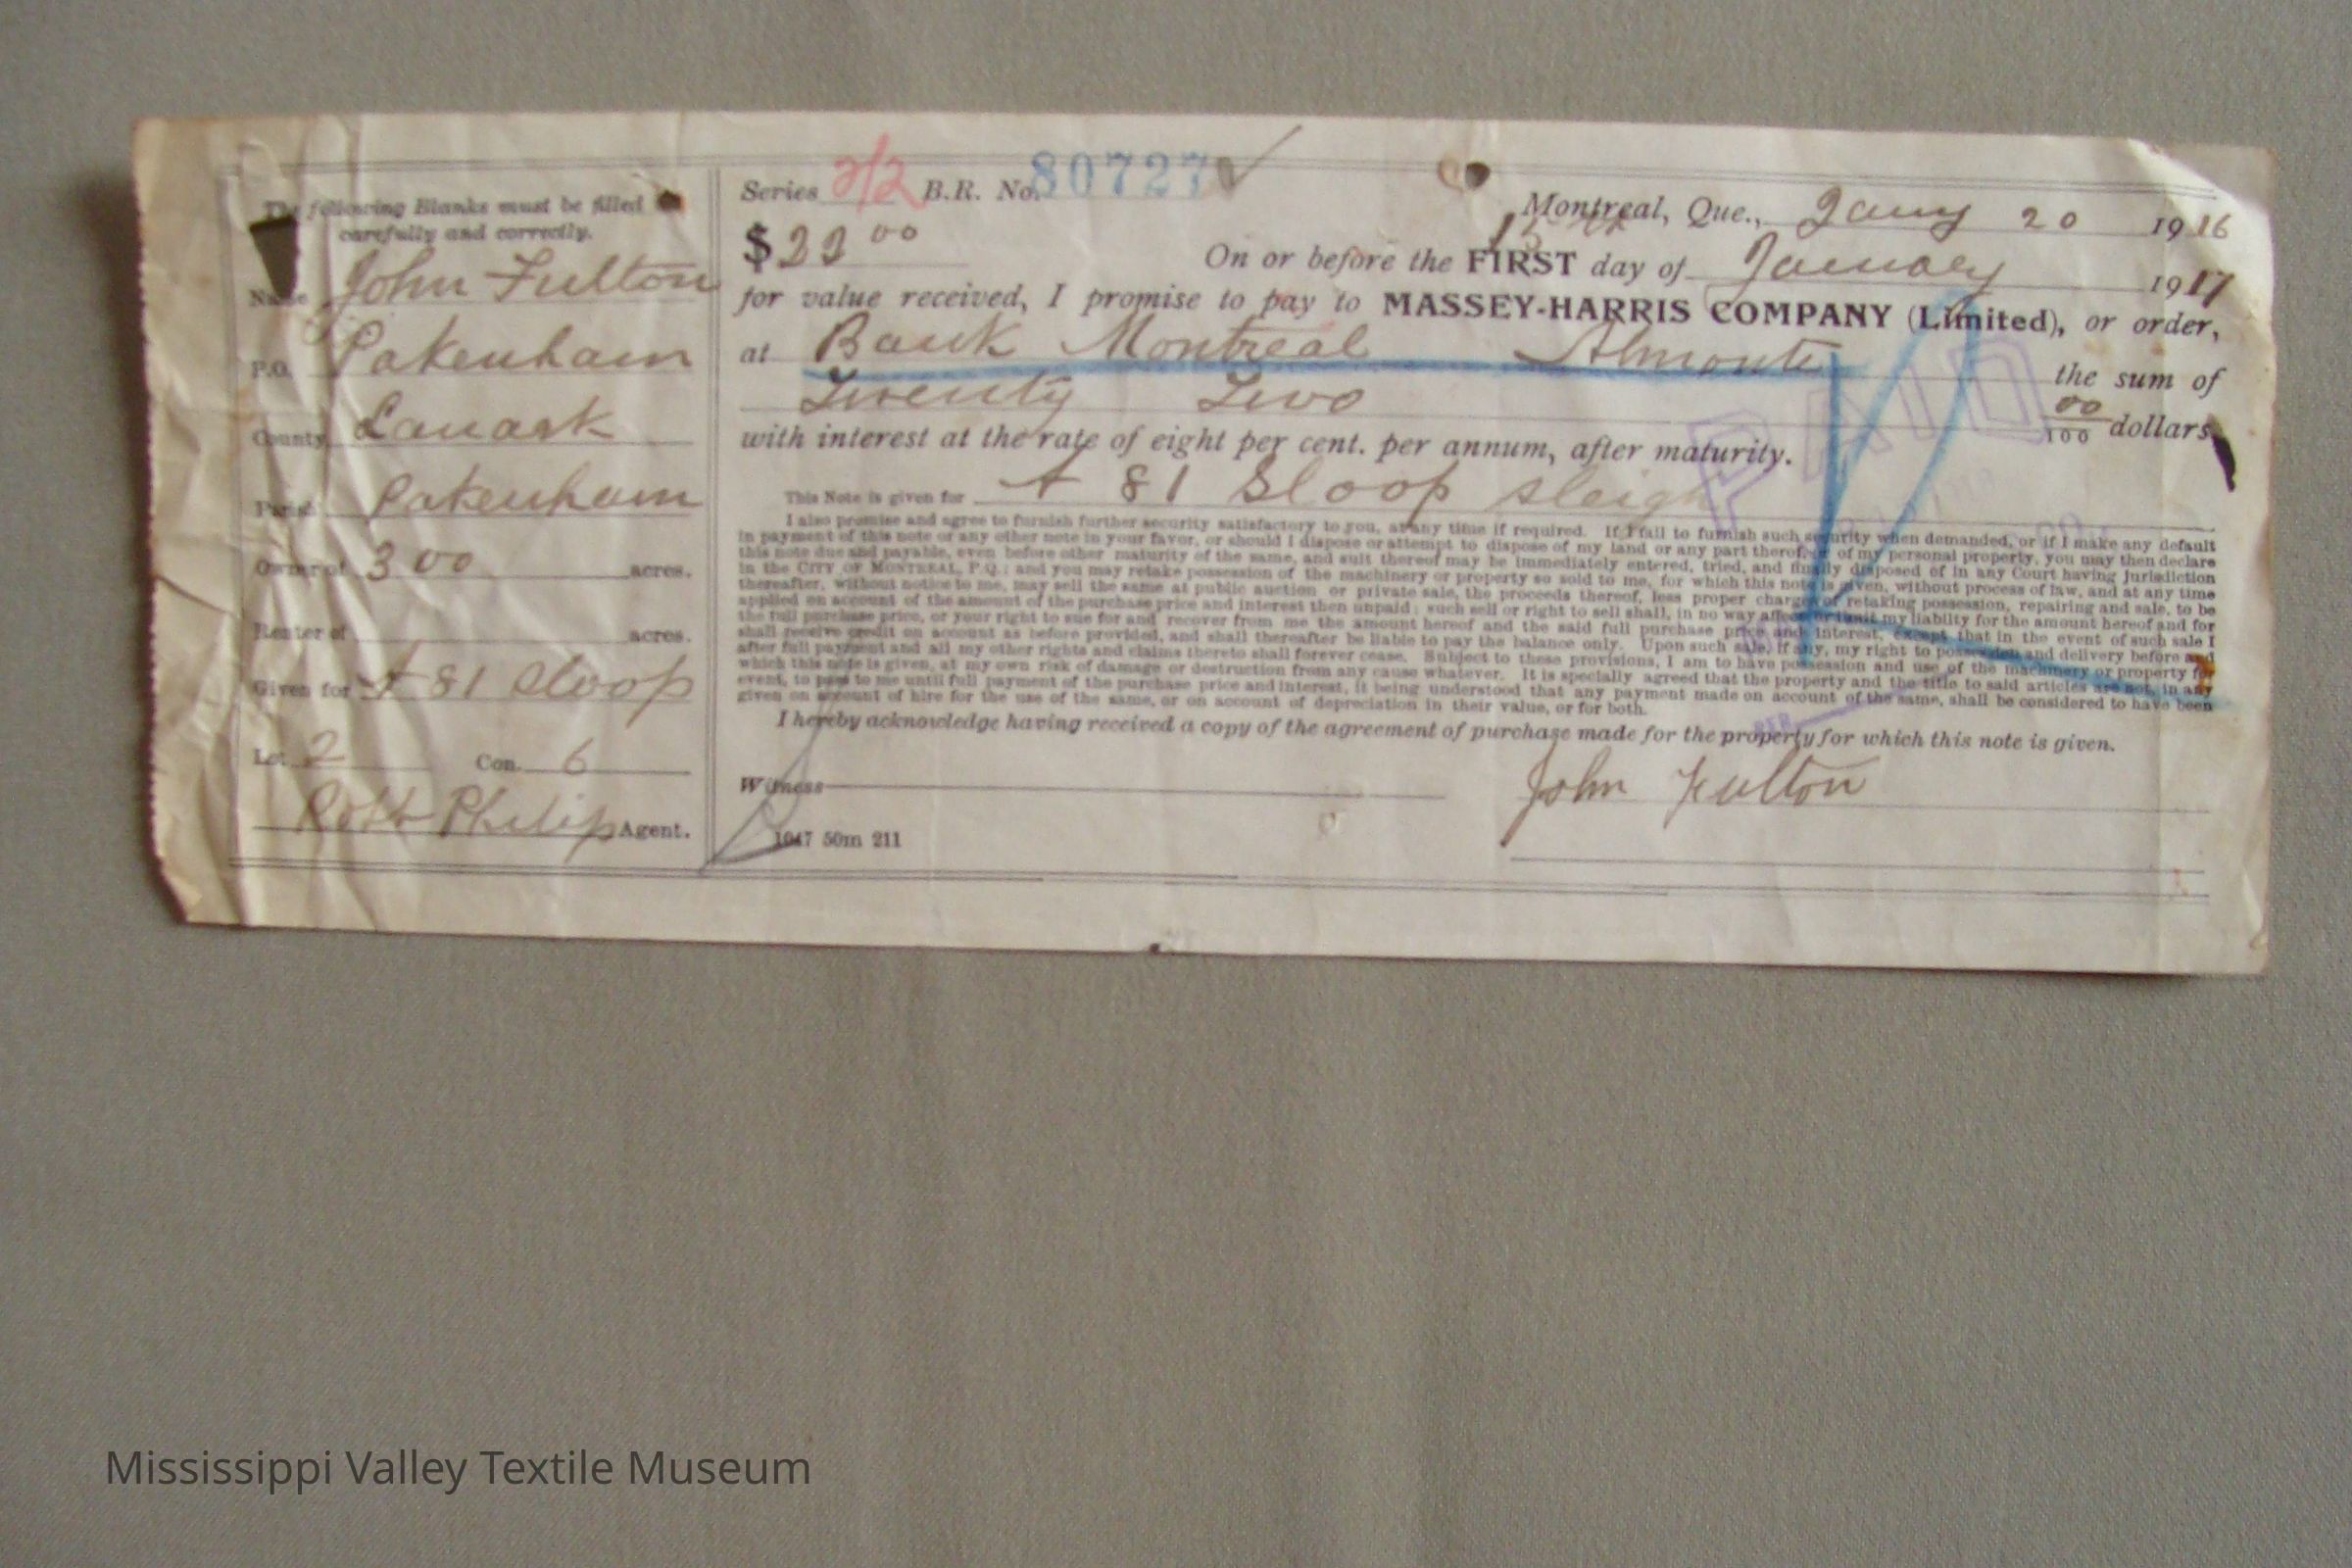 The following Blanks must be filled
carefully and correctly.
Name John Fulton
P.O. Pakenham
County Lanark
Parish Pakenham
Owner of 300 acres.
Renter of acres.
Given for A 81 Sloop
Lot 2 Con. 6
Robt Philip Agent.
Series 2/2 B.R. No. 80727
Montreal, Que., Jany 20 1916
$22 00
15th
On or before the FIRST day of January 1917
for value received, I promise to pay to MASSEY-HARRIS COMPANY (Limited), or order,
at Bank Montreal Almonte
the sum of
Twenty Two 00/100 dollars
with interest at the rate of eight per cent. per annum, after maturity.
PAID
This Note is given for A 81 Sloop sleigh
I also promise and agree to furnish further security satisfactory to you, at any time if required. If I fail to furnish such security when demanded, or if I make any default
in payment of this note or any other note in your favor, or should I dispose or attempt to dispose of my land or any part therof, or of my personal property, you may then declare
this note due and payable, even before other maturity of the same, and suit thereof may be immediately entered, tried, and finally disposed of in any Court having jurisdiction
in the CITY OF MONTREAL, P.Q.; and you may retake possession of the machinery or property so sold to me, for which this note is given, without process of law, and at any time
thereafter, without notice to me, may sell the same at public auction or private sale, the proceeds thereof, less proper charges of retaking possession, repairing and sale, to be
applied on account of the amount of the purchase price and interest then unpaid; such sell or right to sell shall, in no way affect or limit my liablity for the amount hereof and for
the full purchase price, or your right to sue for and recover from me the amount hereof and the said full purchase price and interest, except that in the event of such sale I
shall receive credit on account as before provided, and shall thereafter be liable to pay the balance only. Upon such sale, if any, my right to possession and delivery before and
after full payment and all my other rights and claims thereto shall forever cease. Subject to these provisions, I am to have possession and use of the machinery or property for
which this note is given, at my own risk of damage or destruction from any cause whatever. It is specially agreed that the property and the title to said articles are not, in any
event, to pass to me until full payment of the purchase price and interest, it being understood that any payment made on account of the same, shall be considered to have been
given on account of hire for the use of the same, or on account of depreciation in their value, or for both.
PER
I hereby acknowledge having received a copy of the agreement of purchase made for the property for which this note is given.
Witness
John Fulton
1047 50m 211
Mississippi Valley Textile Museum